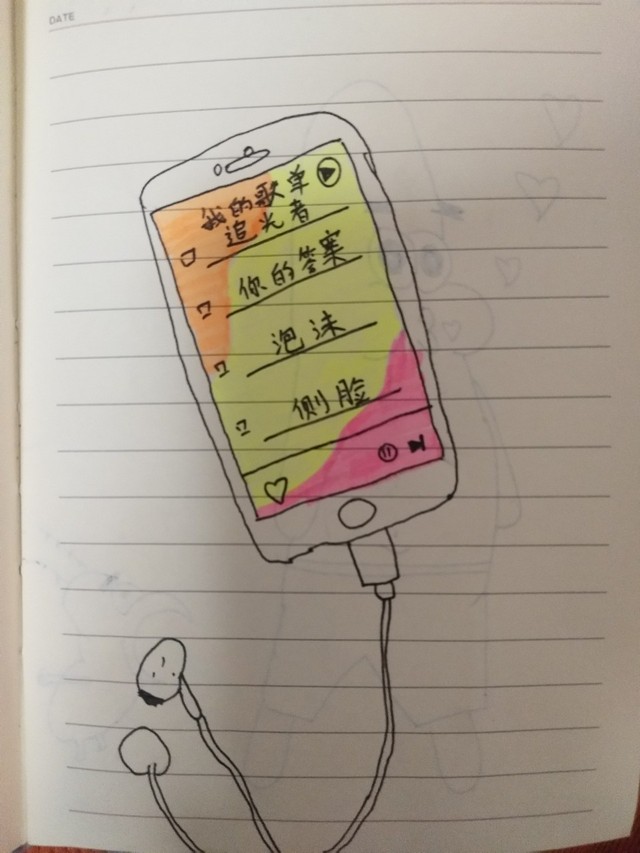 DATE
我的歌单
追光者
你的答案
泡沫
侧脸